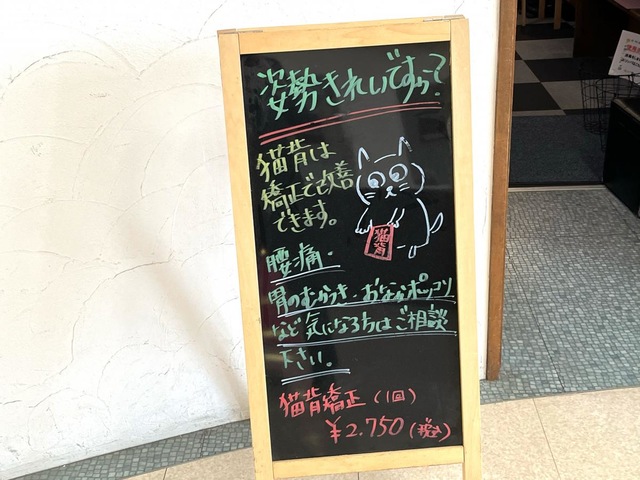 姿勢きれいですか?
猫背は
矯正で改善
できます。
猫背
腰痛・
胃のむかつき・おなかポッコリ
など気になる方はご相談
下さい。
猫背矯正(1回)
¥2.750(税込)